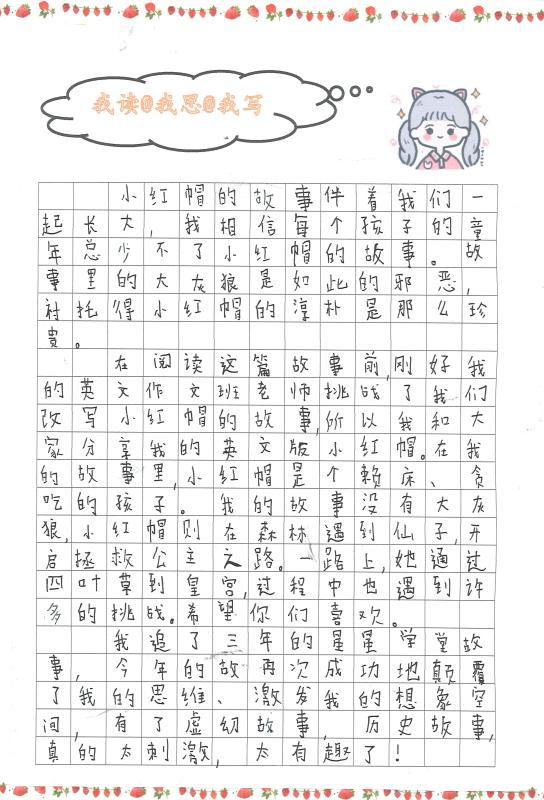 我读@我思@我写
小红帽的故事伴着我们一
起长大，我相信每个孩子的童
年总少不了小红帽的故事。故
事里的大灰狼是如此的邪恶，
衬托得小红帽的淳朴是那么珍
贵。
在阅读这篇故事前，刚好我
的英文作文班老师挑战了我们
改写小红帽的故事，所以我和大
家分享我的英文版小红帽。在我
的故事里，小红帽是个赖床、贪
吃的孩子。我的故事没有大灰
狼，小红帽则在森林遇到仙子，开
启拯救公主之路。一路上，她通过
四叶草到皇宫，过程中也遇到许
多的挑战。希望你们喜欢。
我追了三年的星星学堂故
事，今年的故再次成功地颠覆
了我的思维、激发我的想象空
间，有了虚幻故事，历史故事，
真的太刺激，太有趣了！